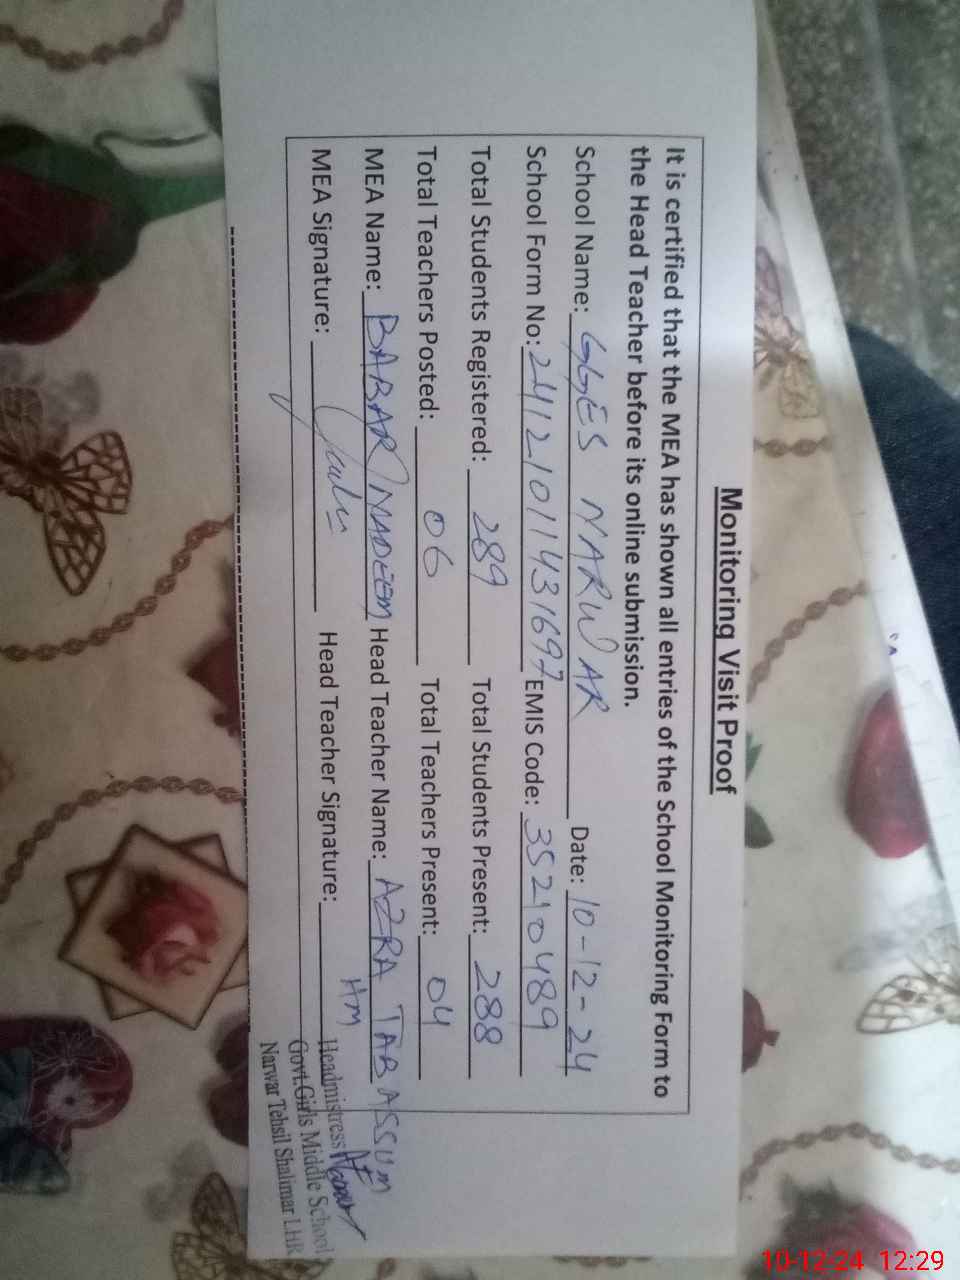 Monitoring Visit Proof
It is certified that the MEA has shown all entries of the School Monitoring Form to
the Head Teacher before its online submission.
School Name: GGES NARWAR Date: 10-12-24
School Form No: 24121011431697 EMIS Code: 35210489
Total Students Registered: 289 Total Students Present: 288
Total Teachers Posted: 06 Total Teachers Present: 04
MEA Name: BABAR NADEEM Head Teacher Name: AZRA TABASSUM
MEA Signature: Head Teacher Signature: HM
Headmistress
Govt.Girls Middle School
Narwar Tehsil Shalimar LHR
10-12-24 12:29